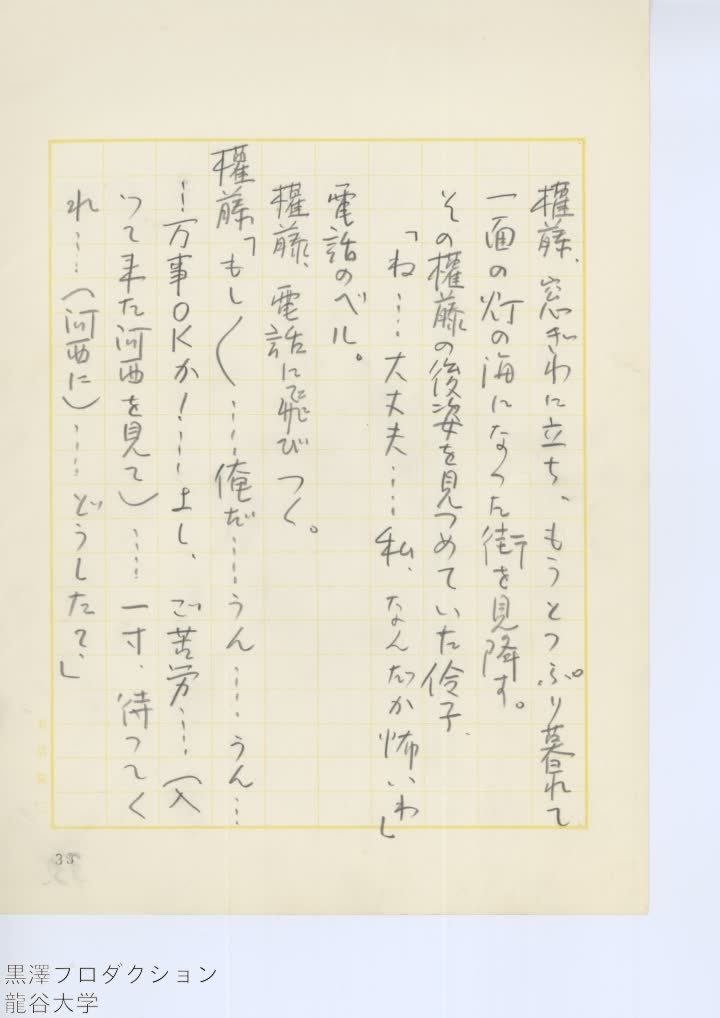 權藤、窓ぎわに立ち、もうとつぷり暮れて
一面の灯の海になつた街を見降す。
その權藤の後姿を見つめていた伶子、
「ね……大丈夫……私、なんだか怖いわ」
電話のベル。
權藤、電話に飛びつく。
權藤「もし〳〵……俺だ……うん……うん…
…万事OKか！……よし、ご苦労……（入
つて来た河西を見て）……一寸、待つてく
れ……（河西に）……どうしたて、」
33
黒澤プロダクション
龍谷大学